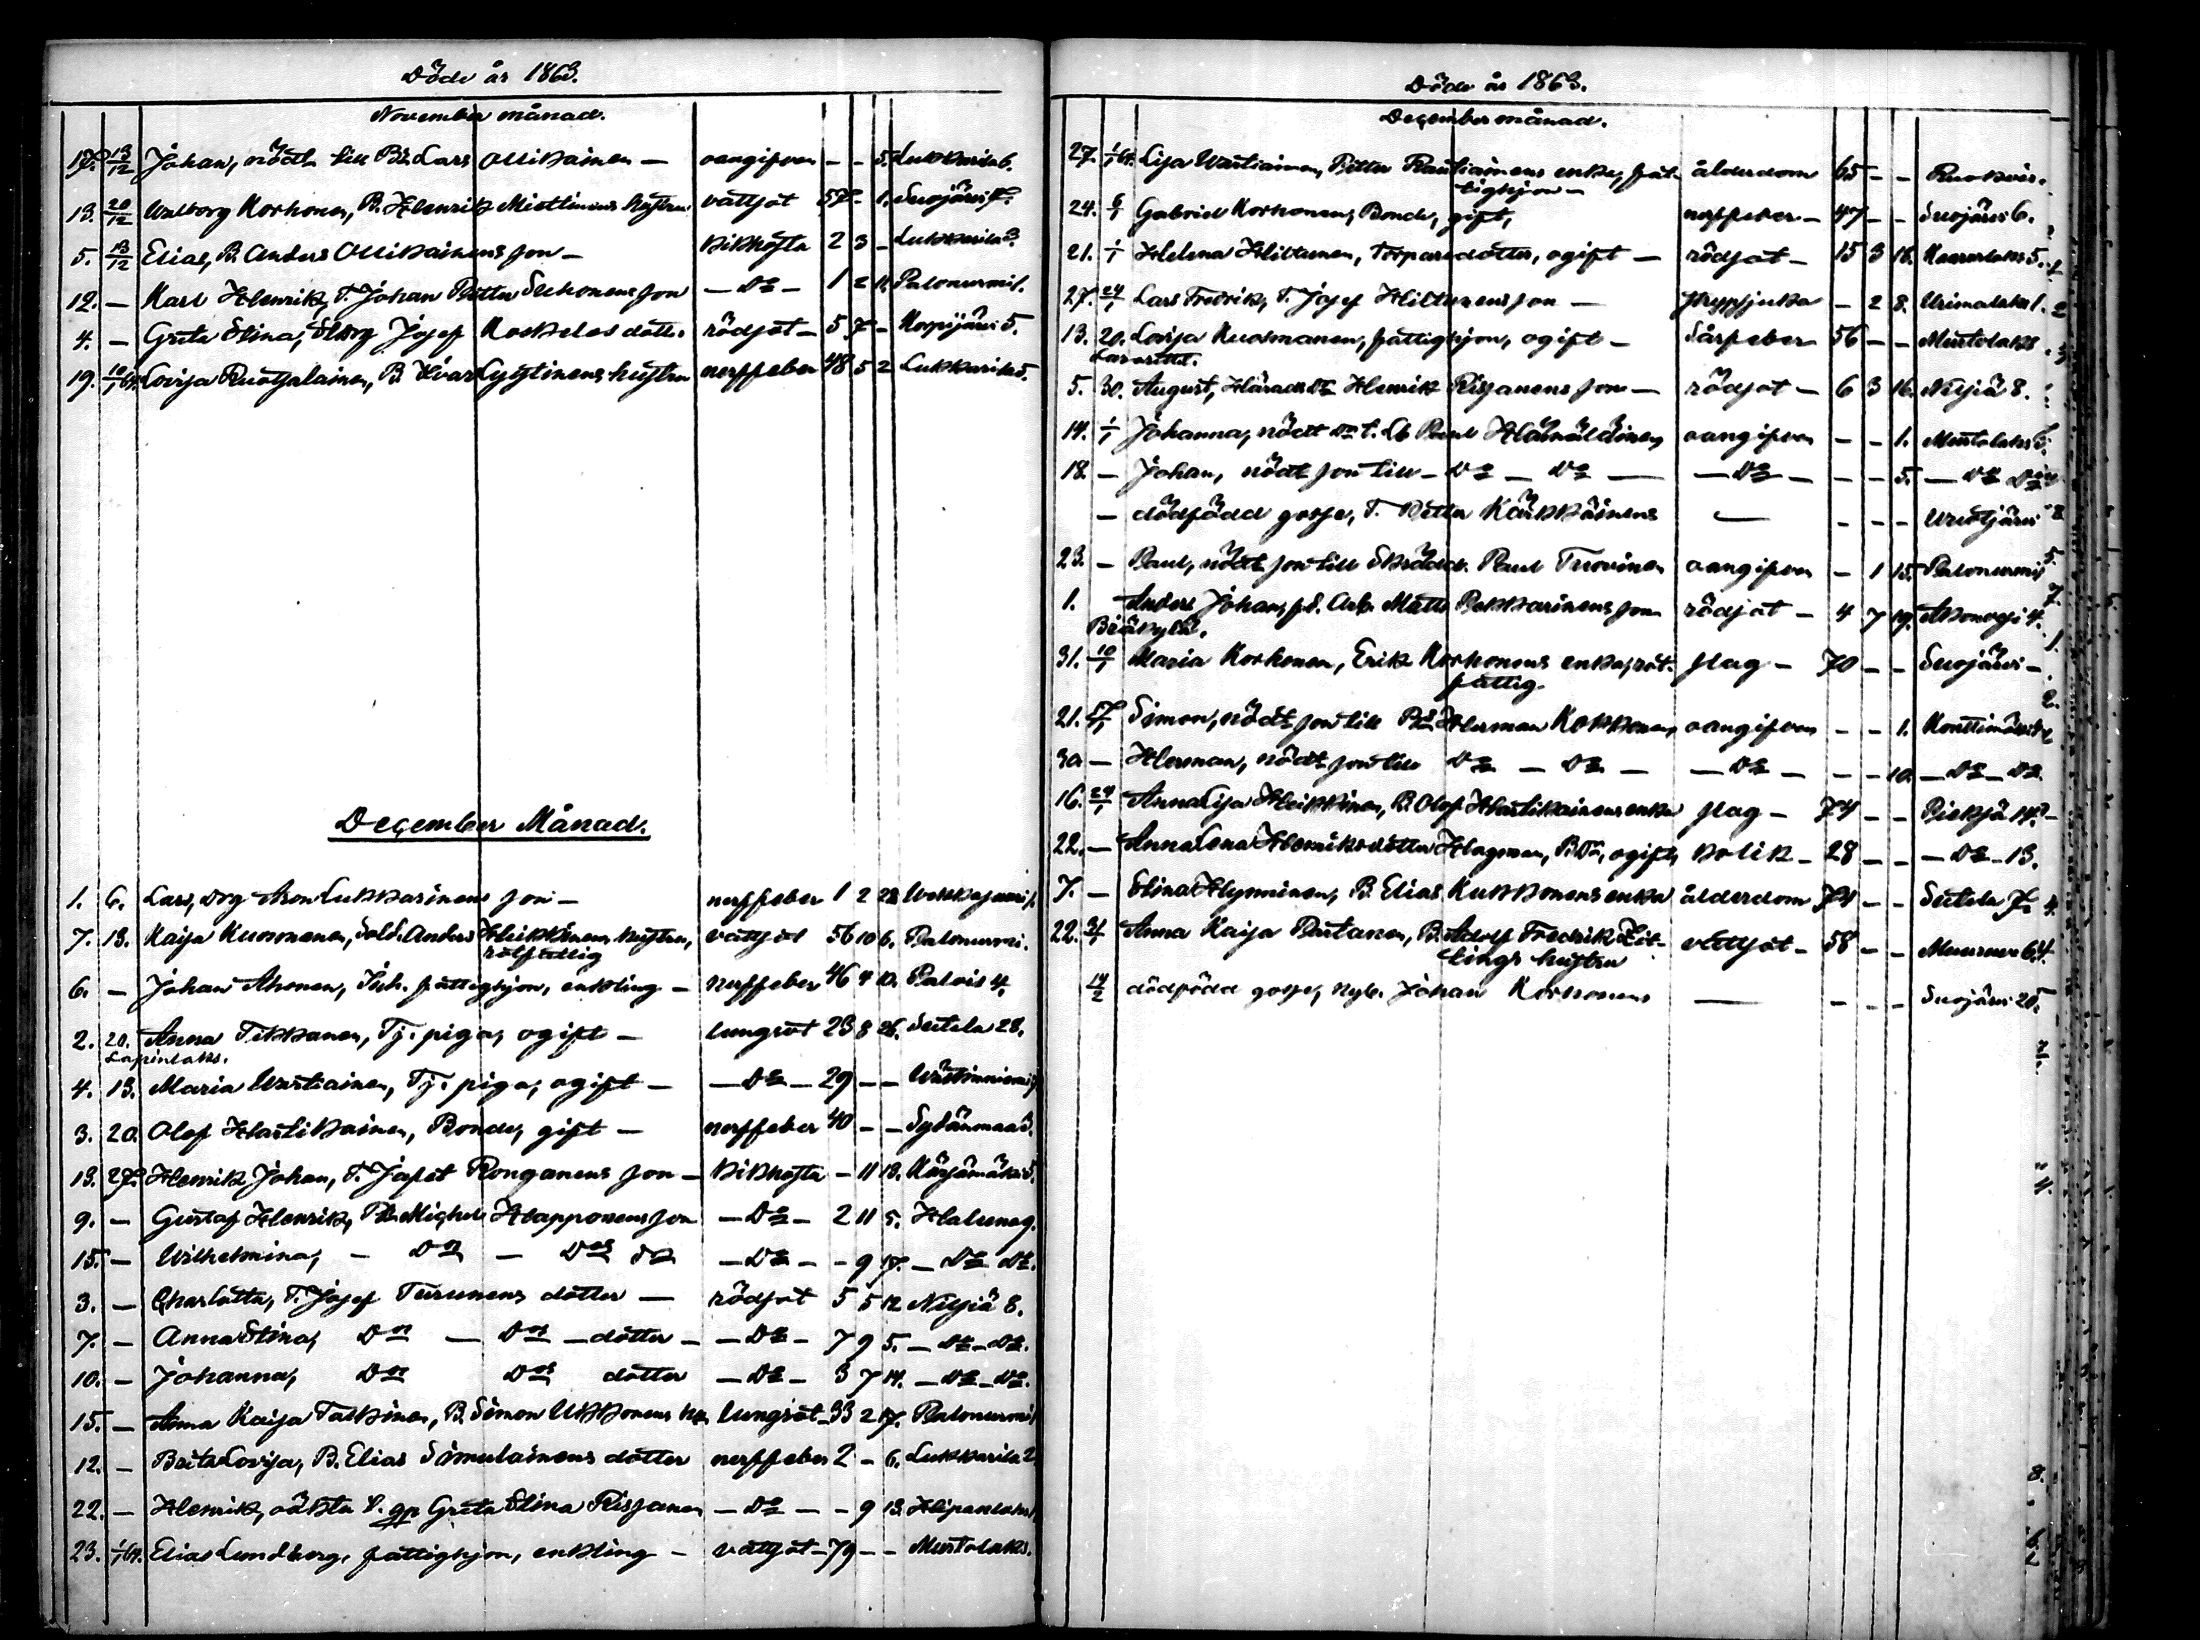 Döde år 1863.
November månad.
17. 13/12 Johan, nödt. till Bs. Lars Ollikainen — oangifven — — 5. Lukkarila 6.
13. 20/12 Walborg Korhonen, B. Henrik Miettinens hustru vattsot 57 - 1. Suojärvi
5. 13/12 Elias, B. Anders Ollikainens son — kikhosta 2 3 — Lukkarila 3.
12. — Karl Henrik, T. Johan Petter Suhonens son — Do — 1 2 11. Palonurmi 1.
4. — Greta Stina, Josef Koskelos dotter rödsot — 5 7 — Korpijärvi 5.
19. 10/1 64. Lovisa Ruotsalainen, B. Ivar Lyytinens hustru nerffeber 48 5 2 Lukkarila 5.
December Månad.
1. 6. Lars, Drg Aron Lukkarinens son — nerffeber 1 2 28
7. 13. Kaija Kuosmanen, Sold. Anders Heikkinens hustru, vattsot 56 10 6. Palonurmi.
rotfattig
6. — Johan Ahonen, Inh. fattighjon, enkling — nerffeber 46 4 10. Palois 4.
2. 20. Anna Tikkanen, Tj. piga, ogift — lungsot 23 8 26. Sutela 28.
Lapinlaks.
4. 13. Maria Wartiainen, Tj. piga, ogift — — Do — 29 — — Västinniemi
3. 20. Olof Hartikainen, Bonde, gift — nerffeber 40 — — Sydänmaa 3.
13. 27. Henrik Johan, T. Jafet Ronganens son — kikhosta — 11 13. Kärsämäki 5.
9. — Gustaf Henrik, Bs. Michel Happonens son — Do — 2 11 5. Haluna 9.
15. — Wilhelmina, — Dn — Dns dr — Do — - 9 17. — Do Do.
3. — Charlotta, T. Josef Turunens dotter — rödsot 5 5 12 Nilsiä 8.
7. — Anna Stina, Dn — Dns — dotter — — Do — 7 9 5. — Do — Do.
10. — Johanna, Dn Dns dotter — Do — 3 7 14. — Do — Do.
15. — Anna Kaija Taskinen, B. Simon Ukkonens h. lungsot — 33 2 17. Palonurmi
12. — Brita Lovisa, B. Elias Simulainens dotter nerffeber 2 — 6. Lukkarila 2
22. — Henrik, oäkta s. qp Greta Stina Risanen — Do — — 9 13. Hipanlaks
23. 1/1 64. Elias Lundberg, fattighjon, enkling — vattsot — 79 — — Mustolaks.
Döde år 1863.
December månad.
27. 1/1 64. Lisa Wartiainen, Petter Rautiainens enka, fat- ålderdom 65 — —
tighjon —
24. 6/1 Gabriel Korhonen, Bonde, gift, nerffeber — 47 — — Suojärvi 6.
21. 1/1 Helena Hiltunen, Torparedotter, ogift — rödsot — 15 3 18.
27. 24/1 Lars Fredrik, T. Josef Hiltunens son — strypsjuka — 2 8. Urimolaks 1.
13. 20. Lovisa Kuosmanen, fattighjon, ogift — Sårfeber 56 — — Mustolaks
5. 30. August, Henrik Risanens son — rödsot — 6 3 16. Nilsiä 8.
14. 1/1 Johanna, nödt dr t. Lb Paul Hämäläinen, oangifven — — 1. Mustolaks 5.
18. — Johan, nödt son till — Do — Do — — Do — — — 5. — Do Do
— dödfödd gosse, T. Petter Kärkkäinens — — — — Urostjärvi
23. — Paul, nödt son till Skrädd. Paul Tuovinen oangifven — 1 15. Palonurmi
1. Anders Johan, fd. Arb. Matts Pekkarinens son rödsot — 4 7 19. Akonoja 4.
31. 10/1 Maria Korhonen, Erik Korhonens enka, rot- slag — 70 — — Suojärvi —
fattig.
21. 17/1 Simon, nödt son till Bs Herman Kokkonen, oangifven — — 1. Konttimäki
30 — Herman, nödt son till Do — Do — — Do — — — 10. — Do — Do
16. 24/1 Anna Lisa Heikkinen, B. Olof Hartikainens enka slag — 74 — — Pieksä 14.
22. — Anna Lena Henriksdotter Hagman, B. Dr, ogift, kolik — 28 — — — Do — 13.
7. — Stina Hynninen, B. Elias Kukkonens enka ålderdom 74 — — Sutela 7.
22. 31/1 Anna Kaija Partanen, B. Adolf Fredrik Zit- vattsot — 58 — — Muuruvesi 64.
tings hustru
14/2 dödfödd gosse, Nyb. Johan Korhonens — — — — Suojärvi 20.